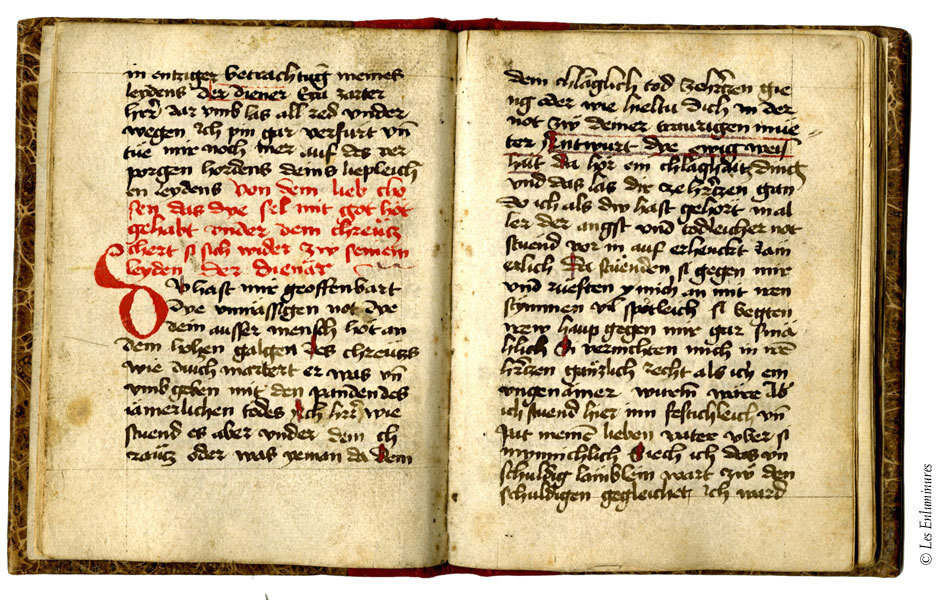 in entziger betrachtung meines
leydens der diener Eya zarter
herr dar umb las all red under
wegen ich pin gar verfurt vn̄
tue mir noch mer auf des ver
porgen hordens deins liepleich
en leydens von dem lieb cho
sen das dye sel mit got hot
gehabt vnder dem chreucz
chert si sich wider zw seinem
leyden der dienär
Du hast mir geoffenbart
dye vnmässigen not dye
dein ausser mensch hot an
dem hohen galgen des chreucis
wie duich martert er was vn̄
vmbgeben mit den panden des
iamerlichen todes Ach hr̄r wie
stuend es aber vnder dem ch
raucz oder was yeman da dem
dem chläglich tod zehrczen gie
ng oder wie hieltu dich in der
not zw deiner traurigen mue
ter Entwurt dye ewig weis
hait da hor ein chläghaicz ding
vnd das las dir cze hrczen gan
do ich als dw hast gehort in al
ler der angst vnd todleicher not
stuend vor in auf erhenckt Jam
erlich Da stuenden si gegen mir
vnd rueften y mich an mit iren
stymmen vil spotleich si begten
irew haup gegen mir gar smä
hlich Si vernichten mich in irē
hrczen gänczlich recht als ich ein
vngenämer wurm wäre Ab
ich stuend hier inn festichleich vn̄
pat meinē lieben vater vber si
mynnichlich Siech ich das vn
schuldig lämblein wart zw den
schuldigen gegleichet ich ward
© Les Enluminures